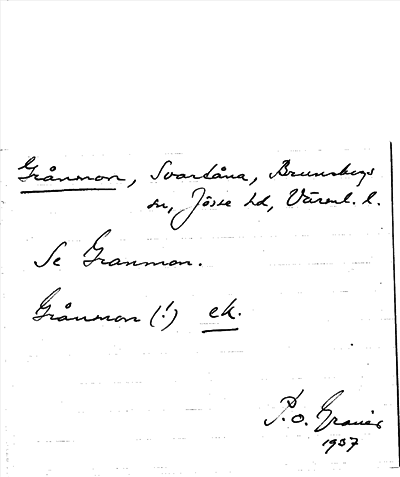 Grånmon, Svartåna, Brunsbergs
sn, Jösse hd, Värml. l.
Se Granmon.
Grånmon (!) ek.
P.o.
1957